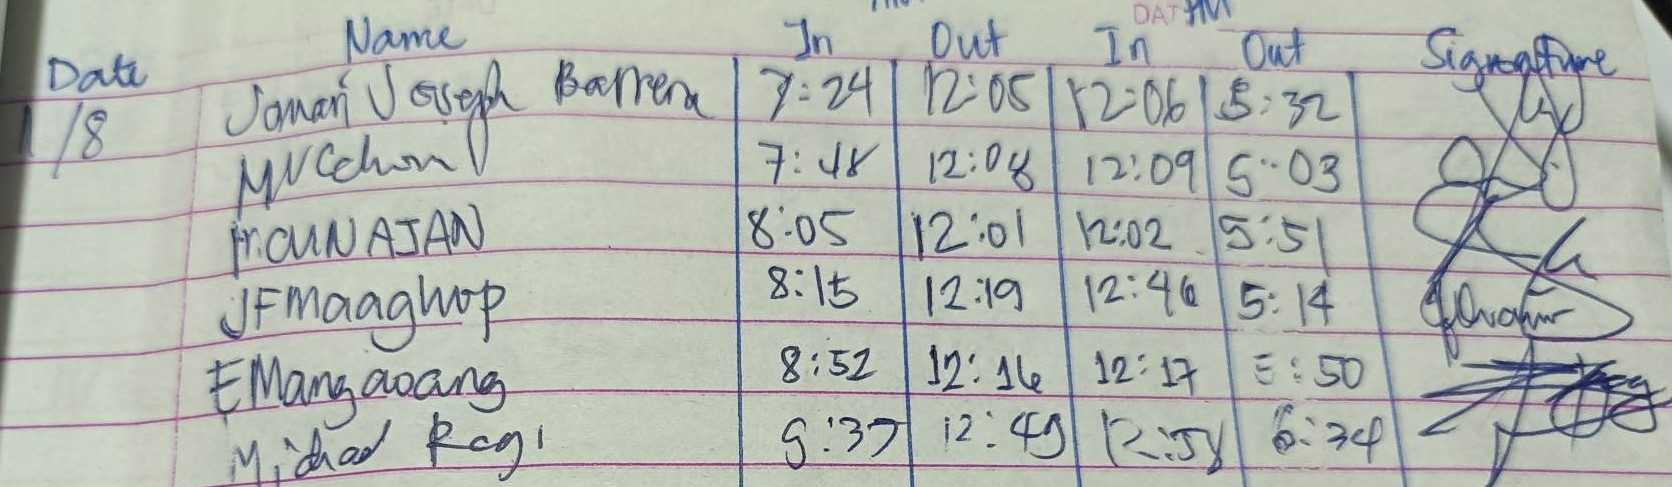 DATE
Date Name In Out In Out Signature
1/8 Jomari Joseph Barrera 7:24 12:05 12:06 5:32
7:48 12:08 12:09 5:03
8:05 12:01 12:02 5:51
JFMaaghop 8:15 12:19 12:46 5:14
EMangaoang 8:52 12:16 12:17 5:50
Michael Regi 9:37 12:49 12:58 6:34